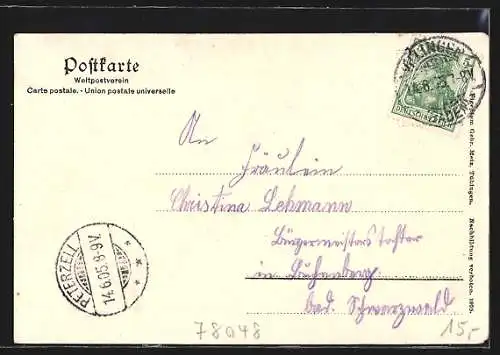 Postkarte
Weltpostverein
Carte postale. - Union postale universelle
An
Fräulein
Christina Lehmann
Bürgermeisters tochter
in Buchenberg
bad. Schwarzwald
PETERZELL
14.6.05.8-9V.
Gebr. Metz, Tübingen. Nachbildung verboten. 1905.
78048
15,-